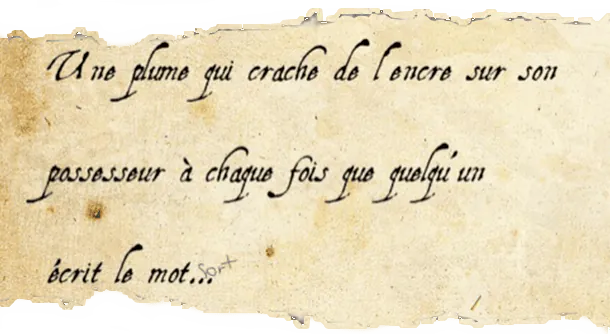 Une plume qui crache de l'encre sur son
possesseur à chaque fois que quelqu'un
écrit le mot... sort